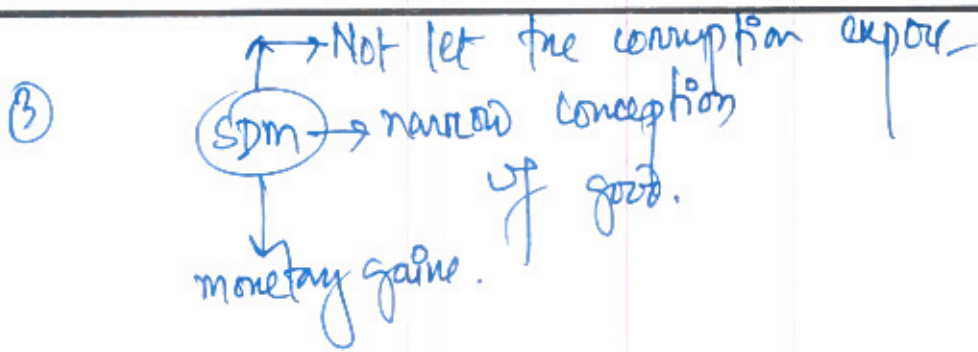 → Not let the corruption expose
③ SDM → narrow conception
of good.
monetary gains.